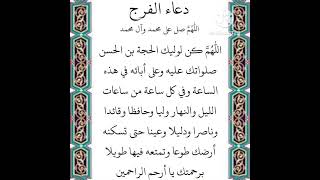 دعاء الفرج
اللّٰهُمَّ صل على محمد وآل محمد
اللّٰهُمَّ كن لوليك الحجة بن الحسن
صلواتك عليه وعلى أبائه في هذه
الساعة وفي كل ساعة من ساعات
الليل والنهار وليا وحافظا وقائدا
وناصرا ودليلا وعينا حتى تسكنه
أرضك طوعا وتمتعه فيها طويلا
برحمتك يا أرحم الراحمين